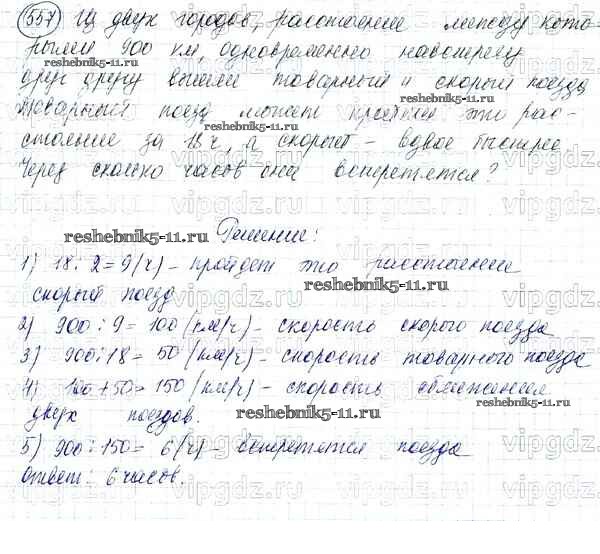 557 Из двух городов, расстояние между кото-
рыми 900 км, одновременно навстречу
друг другу вышли товарный и скорый поезда
Товарный поезд может пройти это рас-
стояние за 18 ч, а скорый - вдвое быстрее.
Через сколько часов они встретятся?
Решение:
1) 18 : 2 = 9 (ч) - пройдет это расстояние
скорый поезд
2) 900 : 9 = 100 (км/ч) - скорость скорого поезда
3) 900 : 18 = 50 (км/ч) - скорость товарного поезда
4) 100 + 50 = 150 (км/ч) - скорость сближения
двух поездов.
5) 900 : 150 = 6 (ч) - встретятся поезда
Ответ: 6 часов.
reshebnik5-11.ru
reshebnik5-11.ru
reshebnik5-11.ru
reshebnik5-11.ru
reshebnik5-11.ru
reshebnik5-11.ru
vipgdz.ru